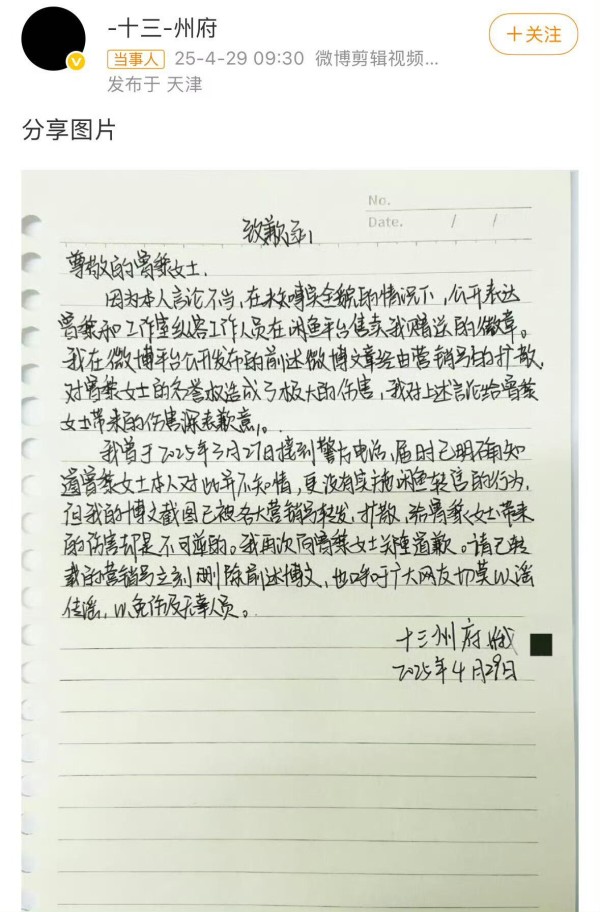 -十三-州府
+关注
当事人 25-4-29 09:30 微博剪辑视频...
发布于 天津
分享图片
No.
Date. / /
致歉函
尊敬的曾黎女士,
因为本人言论不当,在未知完全貌的情况下,公开表达
曾黎和工作室纵容工作人员在闲鱼平台售卖我赠送的徽章。
我在微博平台公开发布的前述微博文章经由营销号的扩散,
对曾黎女士的名誉权造成了极大的伤害,我对上述言论给曾黎
女士带来的伤害深表歉意。
我曾于2025年3月27日接到警方电话,届时已明确知
道曾黎女士本人对此并不知情,更没有实施闲鱼转售的行为,
但我的博文截图已被各大营销号转发、扩散,给曾黎女士带来
的伤害却是不可逆的。我再次向曾黎女士郑重道歉。请已转
载的营销号立刻删除前述博文,也呼吁广大网友切莫以谣
传谣,以免伤及无辜人员。
十三州府
2025年4月29日